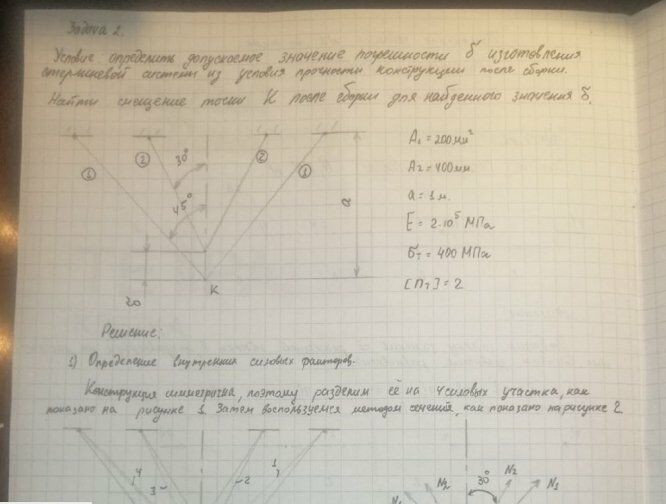 Задача 2.
Условие: определить допускаемое значение погрешности δ изготовления
стержневой системы из условия прочности конструкции после сборки.
Найти смещение точки K после сборки для найденного значения δ.
1 2 30° 2 1
45°
a
K
A₁ = 200 мм²
A₂ = 400 мм
a = 1 м.
E = 2·10⁵ МПа
σт = 400 МПа
[nт] = 2
Решение:
1) Определение внутренних силовых факторов.
Конструкция симметрична, поэтому разделим её на 4 силовых участка, как
показано на рисунке 1. Затем воспользуемся методом сечений, как показано на рисунке 2.
4 3 2 1
N₁ N₂ 30° N₂ N₁